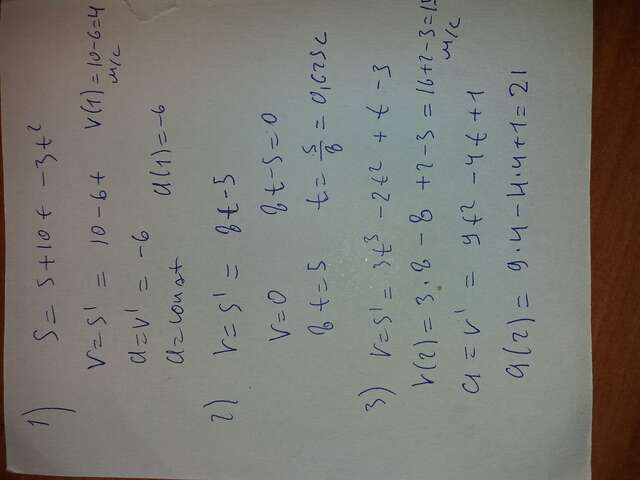 1) S = 5+10t -3t²
V=S' = 10-6t V(1)=10-6=4 м/с
a=V' = -6
a=const a(1)=-6
2) V=S' = 8t-5
V=0 8t-5=0
8t=5 t= 5/8 = 0,625c
3) V=S' = 3t³ -2t² + t -3
V(2)= 3·8 - 8 +2-3 =16+2-3=15 м/с
a = V' = 9t² -4t+1
a(2)= 9·4-4·4+1=21